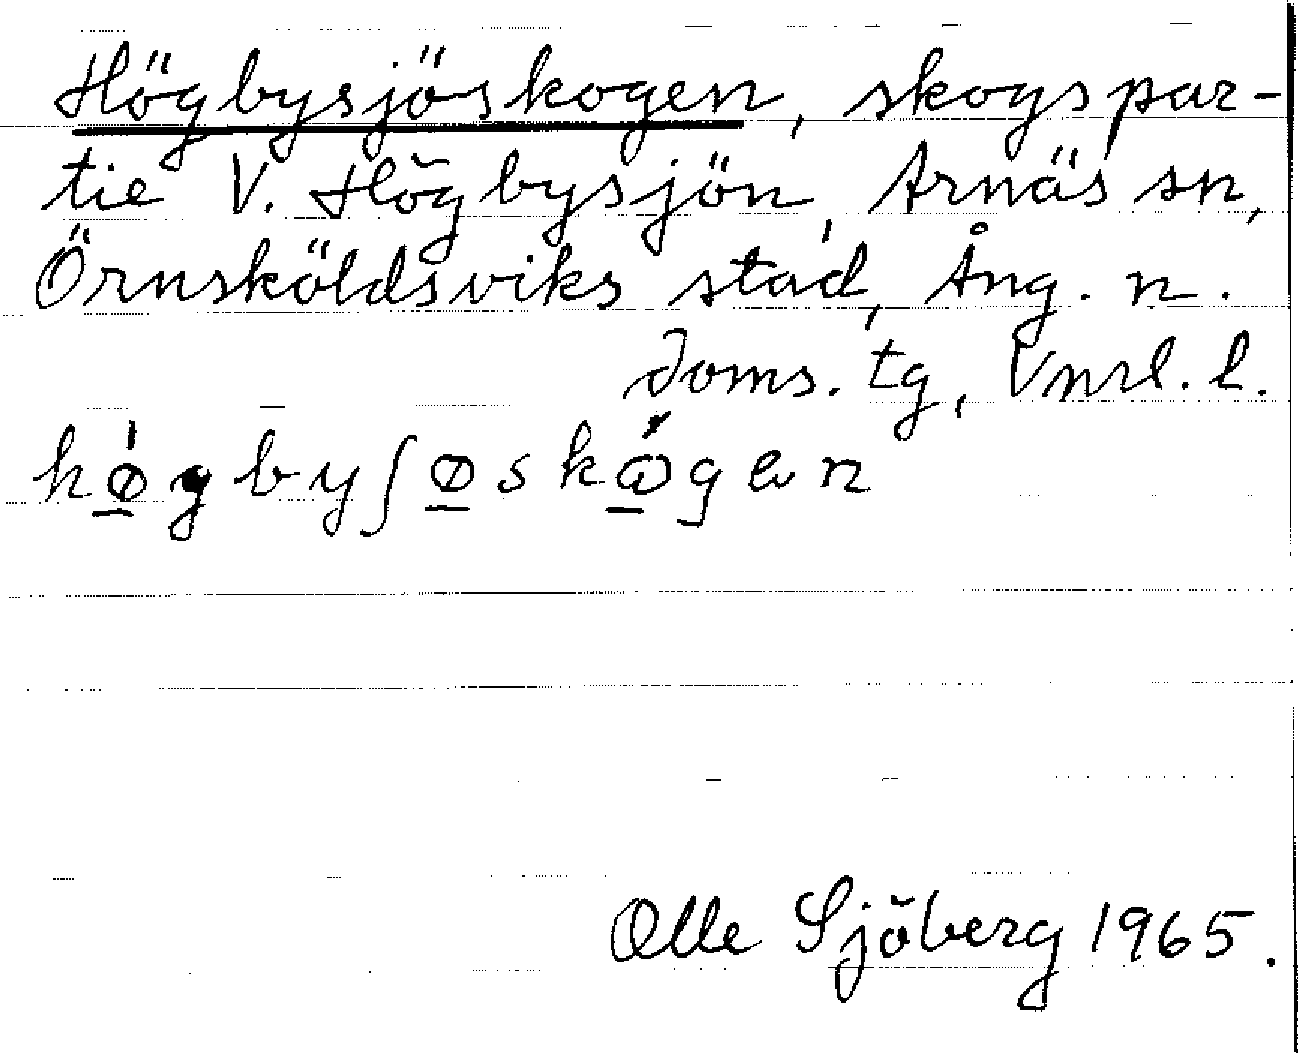 Högbysjöskogen, skogspar-
tie V. Högbysjön, Arnäs sn,
Örnsköldsviks stad, Ång. n.
doms. tg, Vnrl. l.
hǿ̲gbyʃø̲skώ̲gen
Olle Sjöberg 1965.